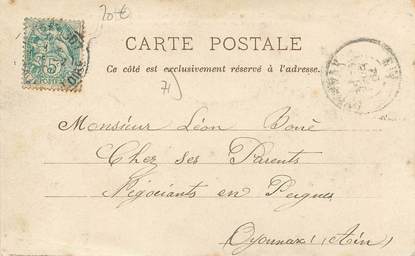 20€
CARTE POSTALE
Ce côté est exclusivement réservé à l'adresse.
71
5
POSTES
Monsieur Léon
Chez ses Parents
Négociants en Peignes
Oyonnax (Ain)